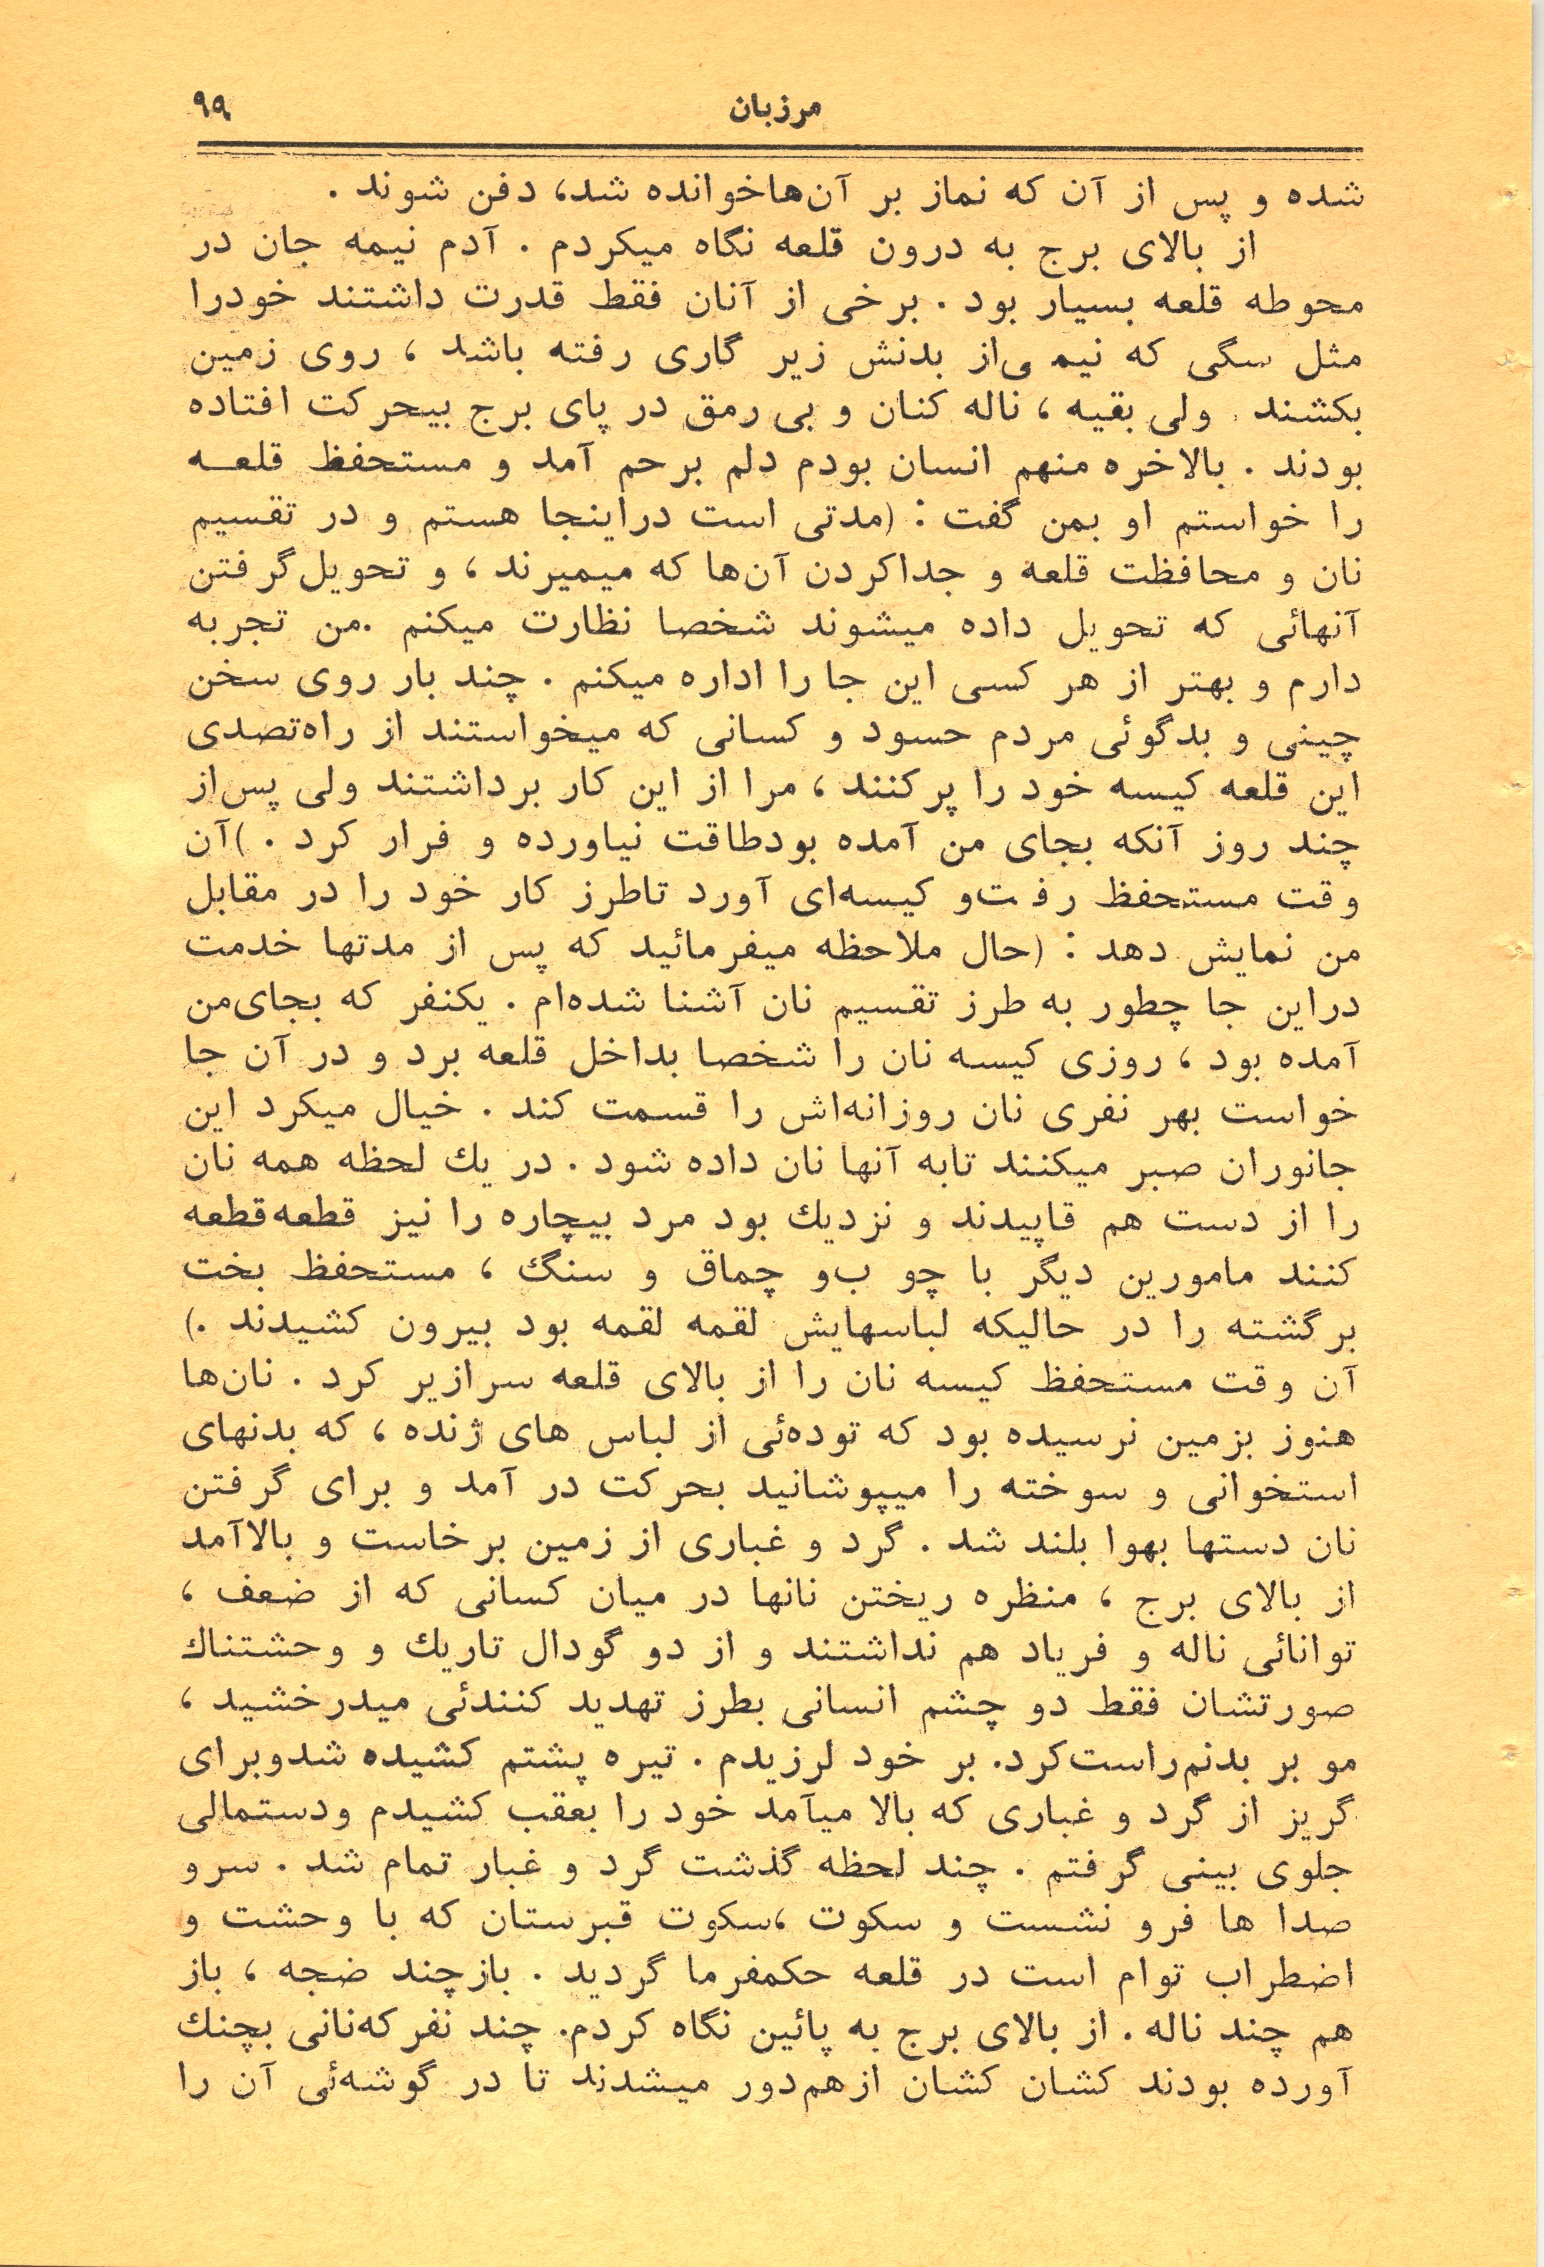 مرزبان ۹۹
شده و پس از آن که نماز بر آن‌هاخوانده شد، دفن شوند .
از بالای برج به درون قلعه نگاه میکردم . آدم نیمه جان در
محوطه قلعه بسیار بود . برخی از آنان فقط قدرت داشتند خودرا
مثل سگی که نیمی‌از بدنش زیر گاری رفته باشد ، روی زمین
بکشند . ولی بقیه ، ناله کنان و بی رمق در پای برج بیحرکت افتاده
بودند . بالاخره منهم انسان بودم دلم برحم آمد و مستحفظ قلعه
را خواستم او بمن گفت : (مدتی است دراینجا هستم و در تقسیم
نان و محافظت قلعه و جداکردن آن‌ها که میمیرند ، و تحویل‌گرفتن
آنهائی که تحویل داده میشوند شخصا نظارت میکنم .من تجربه
دارم و بهتر از هر کسی این جا را اداره میکنم . چند بار روی سخن
چینی و بدگوئی مردم حسود و کسانی که میخواستند از راه‌تصدی
این قلعه کیسه خود را پرکنند ، مرا از این کار برداشتند ولی پس‌از
چند روز آنکه بجای من آمده بودطاقت نیاورده و فرار کرد . )آن
وقت مستحفظ رفت‌و کیسه‌ای آورد تاطرز کار خود را در مقابل
من نمایش دهد : (حال ملاحظه میفرمائید که پس از مدتها خدمت
دراین جا چطور به طرز تقسیم نان آشنا شده‌ام . یکنفر که بجای‌من
آمده بود ، روزی کیسه نان را شخصا بداخل قلعه برد و در آن جا
خواست بهر نفری نان روزانه‌اش را قسمت کند . خیال میکرد این
جانوران صبر میکنند تابه آنها نان داده شود . در یك لحظه همه نان
را از دست هم قاپیدند و نزدیك بود مرد بیچاره را نیز قطعه‌قطعه
کنند مامورین دیگر با چوب‌و چماق و سنگ ، مستحفظ بخت
برگشته را در حالیکه لباسهایش لقمه لقمه بود بیرون کشیدند .)
آن وقت مستحفظ کیسه نان را از بالای قلعه سرازیر کرد . نان‌ها
هنوز بزمین نرسیده بود که توده‌ئی از لباس های ژنده ، که بدنهای
استخوانی و سوخته را میپوشانید بحرکت در آمد و برای گرفتن
نان دستها بهوا بلند شد . گرد و غباری از زمین برخاست و بالاآمد
از بالای برج ، منظره ریختن نانها در میان کسانی که از ضعف ،
توانائی ناله و فریاد هم نداشتند و از دو گودال تاریك و وحشتناك
صورتشان فقط دو چشم انسانی بطرز تهدید کنندئی میدرخشید ،
مو بر بدنم‌راست‌کرد. بر خود لرزیدم . تیره پشتم کشیده شدوبرای
گریز از گرد و غباری که بالا میآمد خود را بعقب کشیدم ودستمالی
جلوی بینی گرفتم . چند لحظه گذشت گرد و غبار تمام شد . سرو
صدا ها فرو نشست و سکوت ،سکوت قبرستان که با وحشت و
اضطراب توام است در قلعه حکمفرما گردید . بازچند ضجه ، باز
هم چند ناله . از بالای برج به پائین نگاه کردم. چند نفرکه‌نانی بچنك
آورده بودند کشان کشان ازهم‌دور میشدند تا در گوشه‌ئی آن را